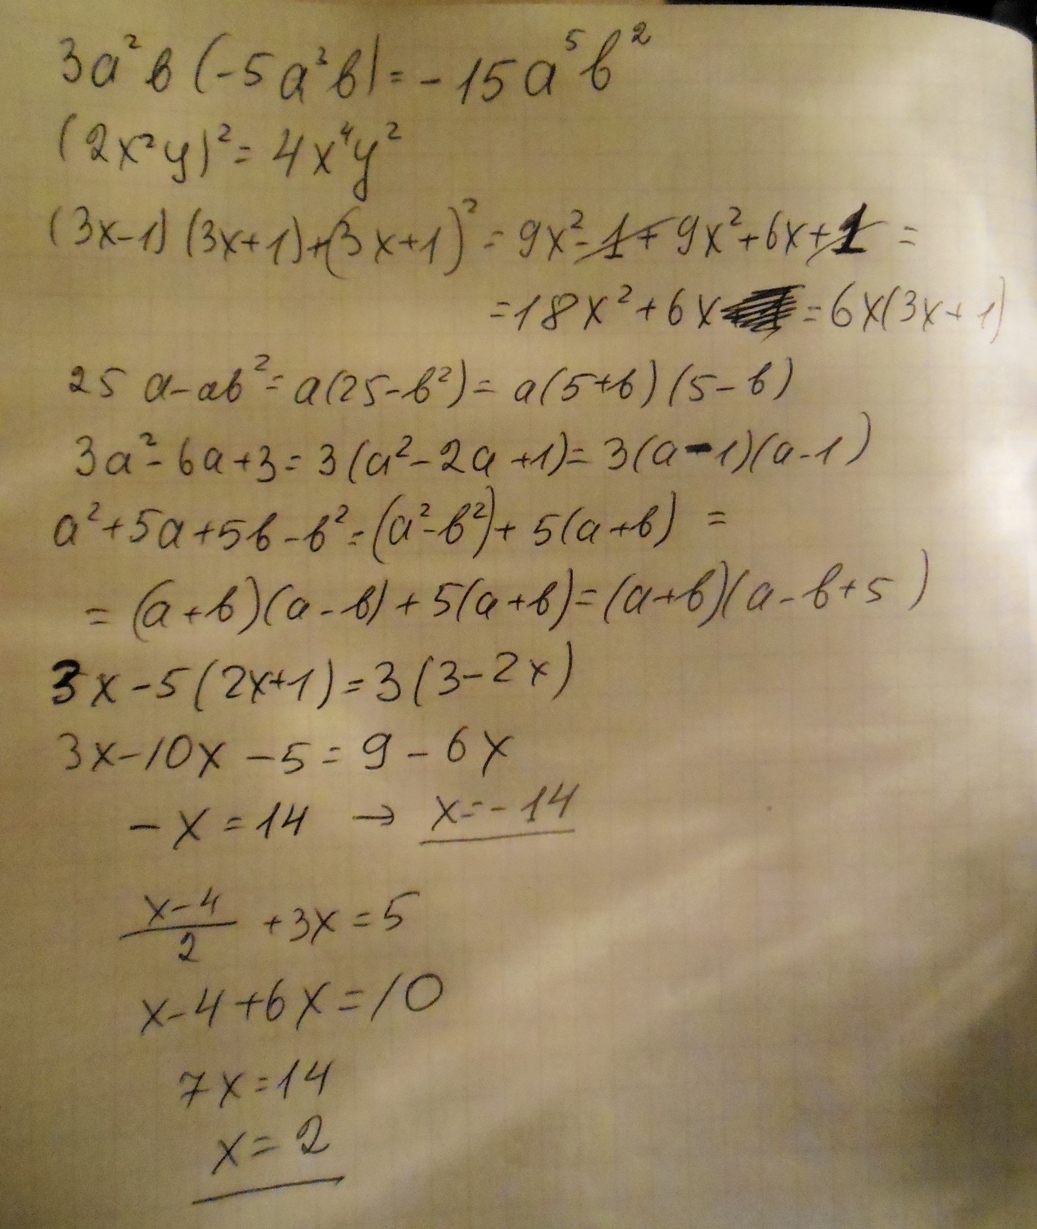 3a²b(-5a³b)=-15a⁵b²
(2x²y)²=4x⁴y²
(3x-1)(3x+1)+(3x+1)²=9x²-1+9x²+6x+1=
=18x²+6x=6x(3x+1)
25a-ab²=a(25-b²)=a(5+b)(5-b)
3a²-6a+3=3(a²-2a+1)=3(a-1)(a-1)
a²+5a+5b-b²=(a²-b²)+5(a+b)=
=(a+b)(a-b)+5(a+b)=(a+b)(a-b+5)
3x-5(2x+1)=3(3-2x)
3x-10x-5=9-6x
-x=14 → x=-14
(x-4)/2+3x=5
x-4+6x=10
7x=14
x=2